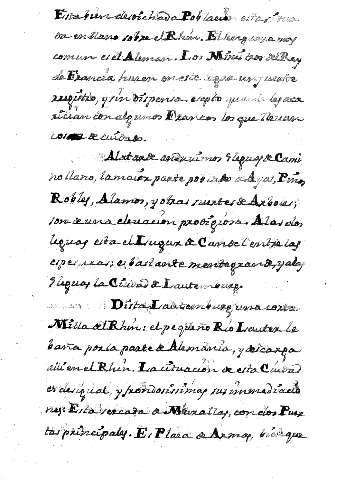 Esta bien desdichada Poblacion esta situa
da en llano sobre el Rhin. El lenguaxe mas
comun es el Aleman. Los Ministros del Rey
de Francia hacen en este lugar un
registro, y sin dispensa, excepto quando les aca
rician con algunos Francos los que llevan
cosas de cuidado.
A la tarde anduvimos 4 leguas de Cami
no llano, la maior parte poblado de Ayas, Pinos,
Robles, Alamos, y otras suertes de Arboles;
son de una elevacion prodigiosa. A las dos
leguas esta el Lugar de Candel entre las
espesuras; es bastantemente grande, y a las
4 leguas la Ciudad de Lautemburg.
Dista Lautemburg una corta
Milla del Rhin: el pequeño Rio Lauter le
baña por la parte de Alemania, y descarga
alli en el Rhin. La situacion de esta Ciudad
es desigual, y frondosissimas sus inmediacio
nes: Esta cercada de Murallas, con dos Puer
tas principales. Es Plaza de Armas, bien que